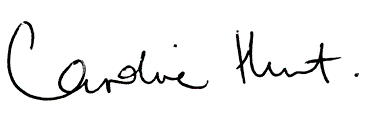 Caroline Hunt.